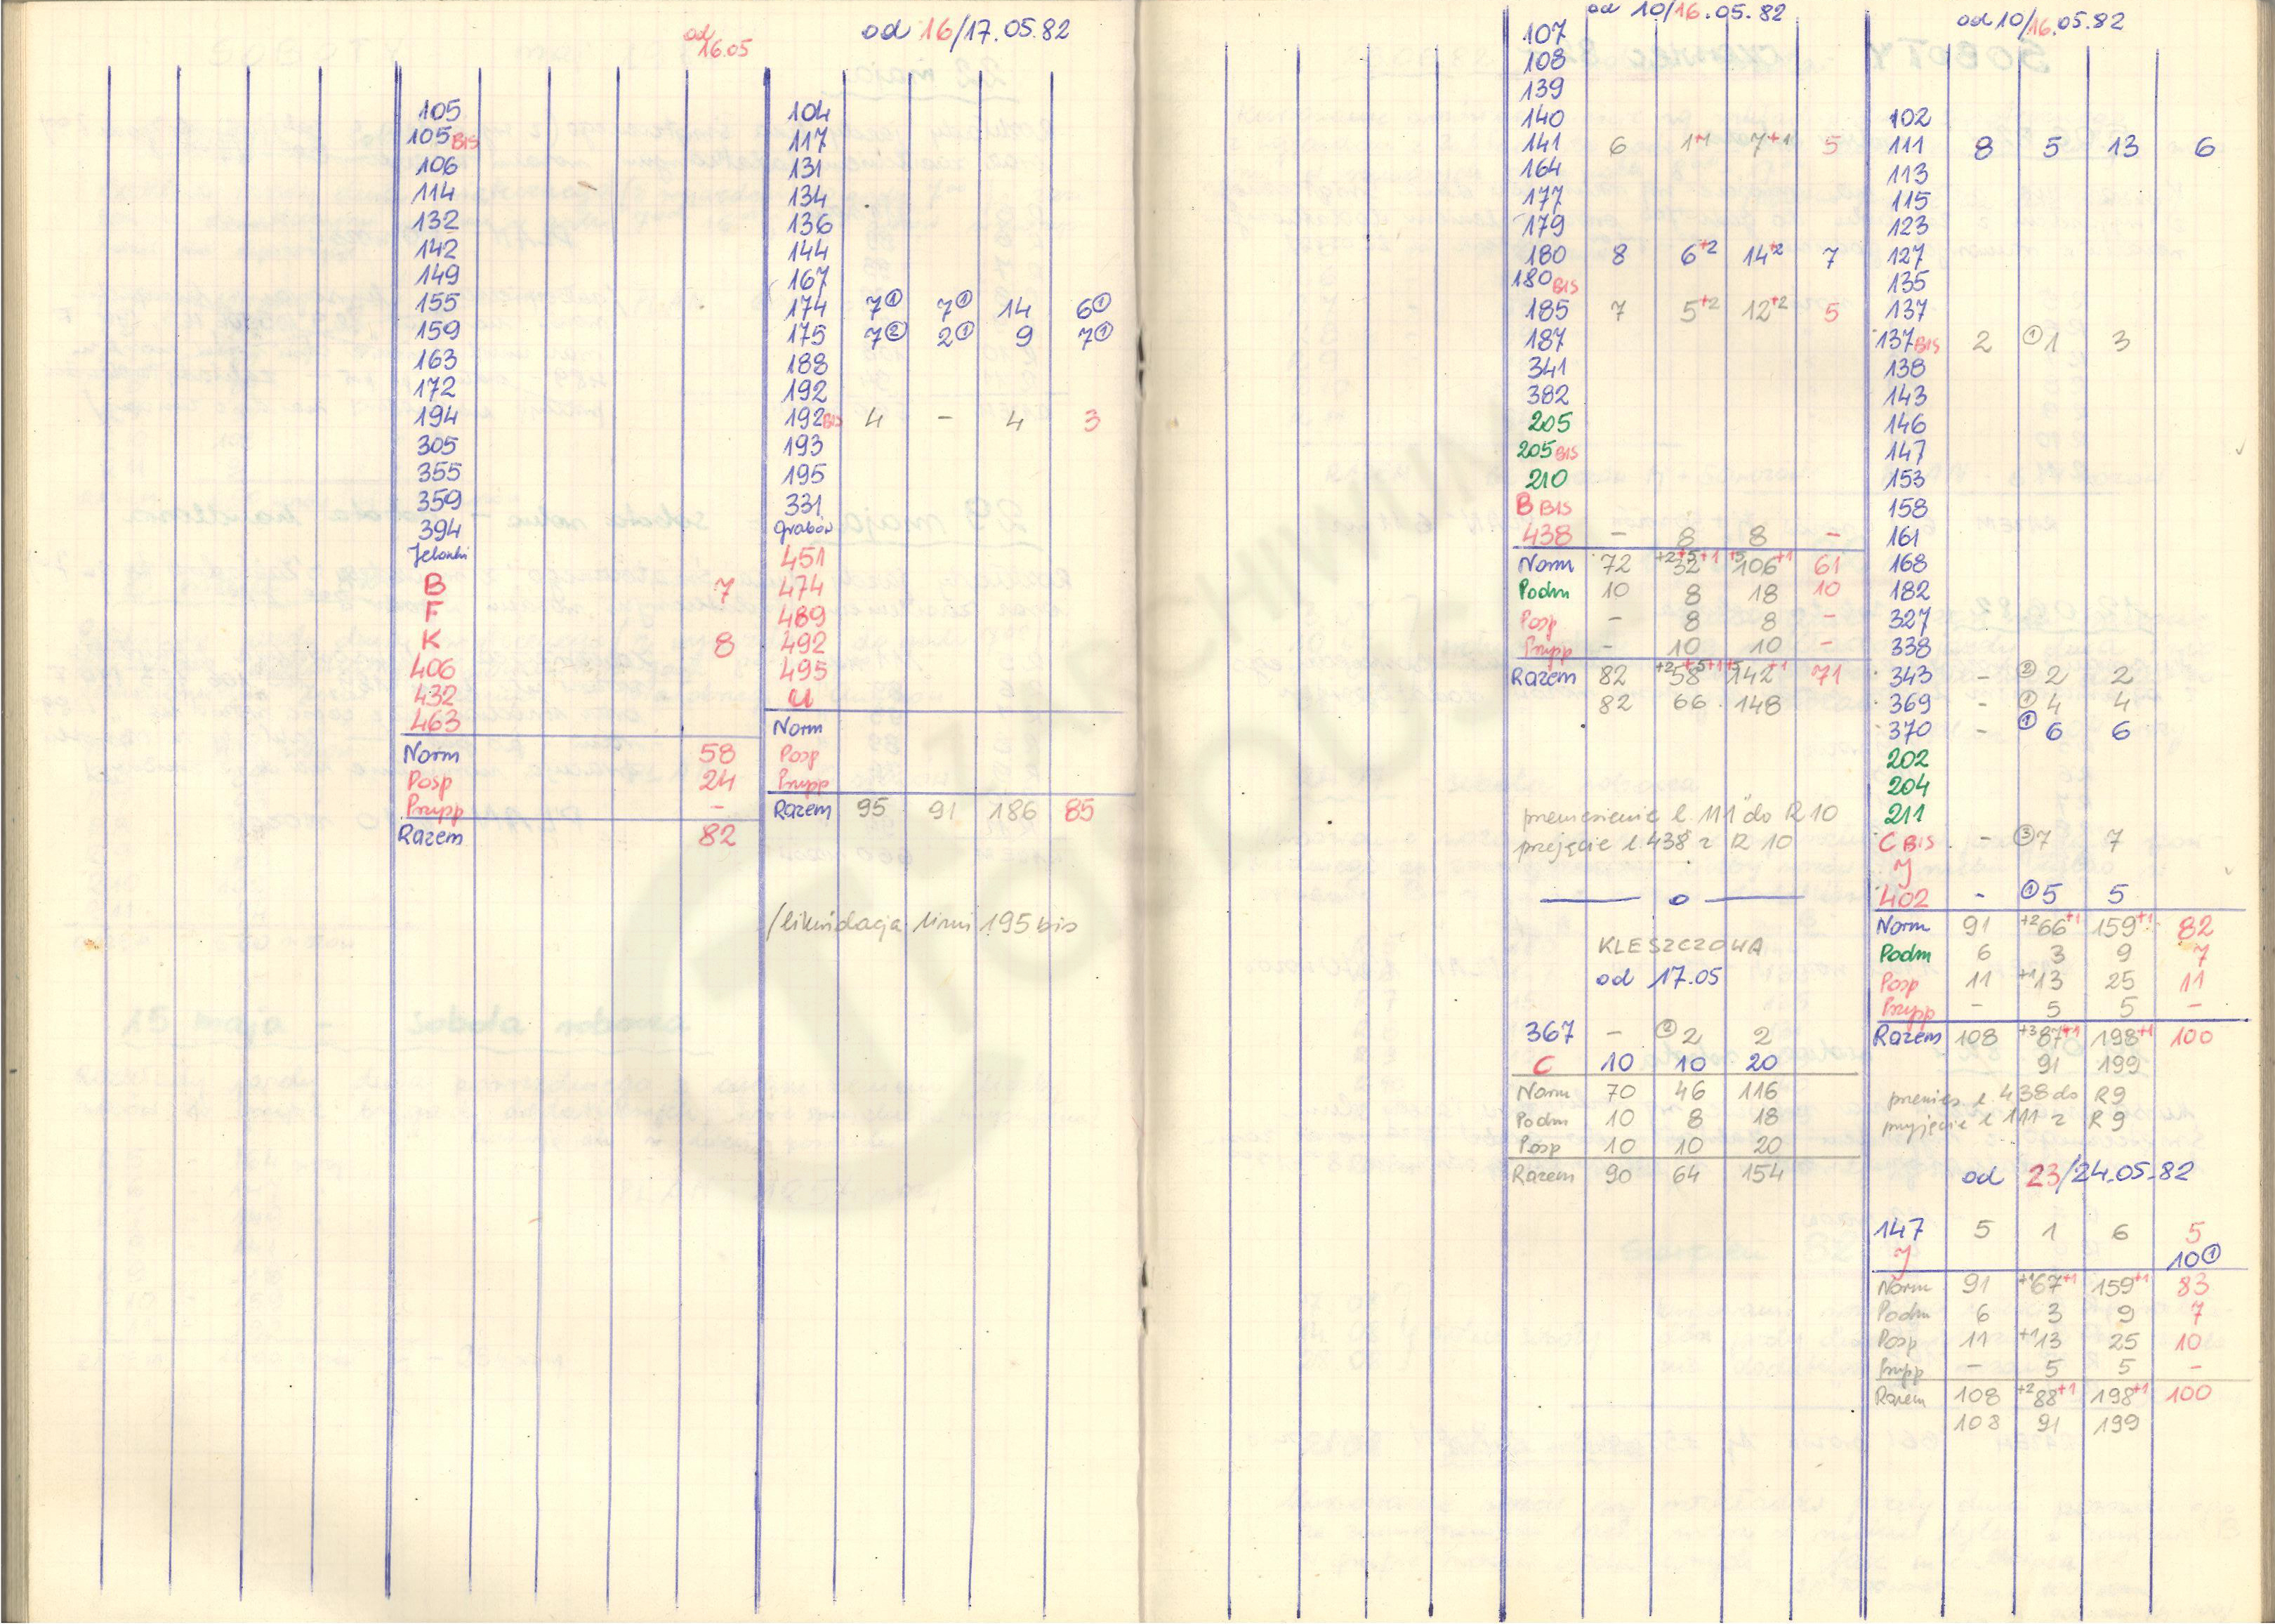 od
16.05
105
105 BIS
106
114
132
142
149
155
159
163
172
194
305
355
359
394
Jelonki
B 7
F
K 8
406
432
463
Norm 58
Posp 24
Przyp -
Razem 82
od 16/17.05.82
104
117
131
134
136
144
167
174 7① 7① 14 6①
175 7② 2① 9 7①
188
192
192 BIS 4 - 4 3
193
195
331
Grabów
451
474
489
492
495
U
Norm
Posp
Przyp
Razem 95 91 186 85
/likwidacja linii 195 bis
od 10/16.05.82
107
108
139
140
141 6 1+1 7+1 5
164
177
179
180 8 6+2 14+2 7
180 BIS
185 7 5+2 12+2 5
187
341
382
205
205 BIS
210
B BIS
438 - 8 8 -
Norm 72 +2 32 +5+1 +5 106 +1 61
Podm 10 8 18 10
Posp - 8 8 -
Przyp - 10 10 -
Razem 82 +2 58 +5+1 +5 142 +1 71
82 66 148
przeniesienie l. 111 do R 10
przejęcie l. 438 z R 10
— o —
KLESZCZOWA
od 17.05
367 - ② 2 2
C 10 10 20
Norm 70 46 116
Podm 10 8 18
Posp 10 10 20
Razem 90 64 154
od 10/16.05.82
102
111 8 5 13 6
113
115
123
127
135
137
137 BIS 2 ①1 3
138
143
146
147
153
158
161
168
182
327
338
343 - ② 2 2
369 - ① 4 4
370 - ① 6 6
202
204
211
C BIS - ③7 7
J
402 - ①5 5
Norm 91 +2 66 +1 159 +1 82
Podm 6 3 9 7
Posp 11 +1 13 25 11
Przyp - 5 5 -
Razem 108 +3 87 +1 198 +1 100
91 199
przenies l. 438 do R9
przyjęcie l 111 z R 9
od 23/24.05.82
147 5 1 6 5
J 10①
Norm 91 +1 67 +1 159 +1 83
Podm 6 3 9 7
Posp 11 +1 13 25 10
Przyp - 5 5 -
Razem 108 +2 88 +1 198 +1 100
108 91 199